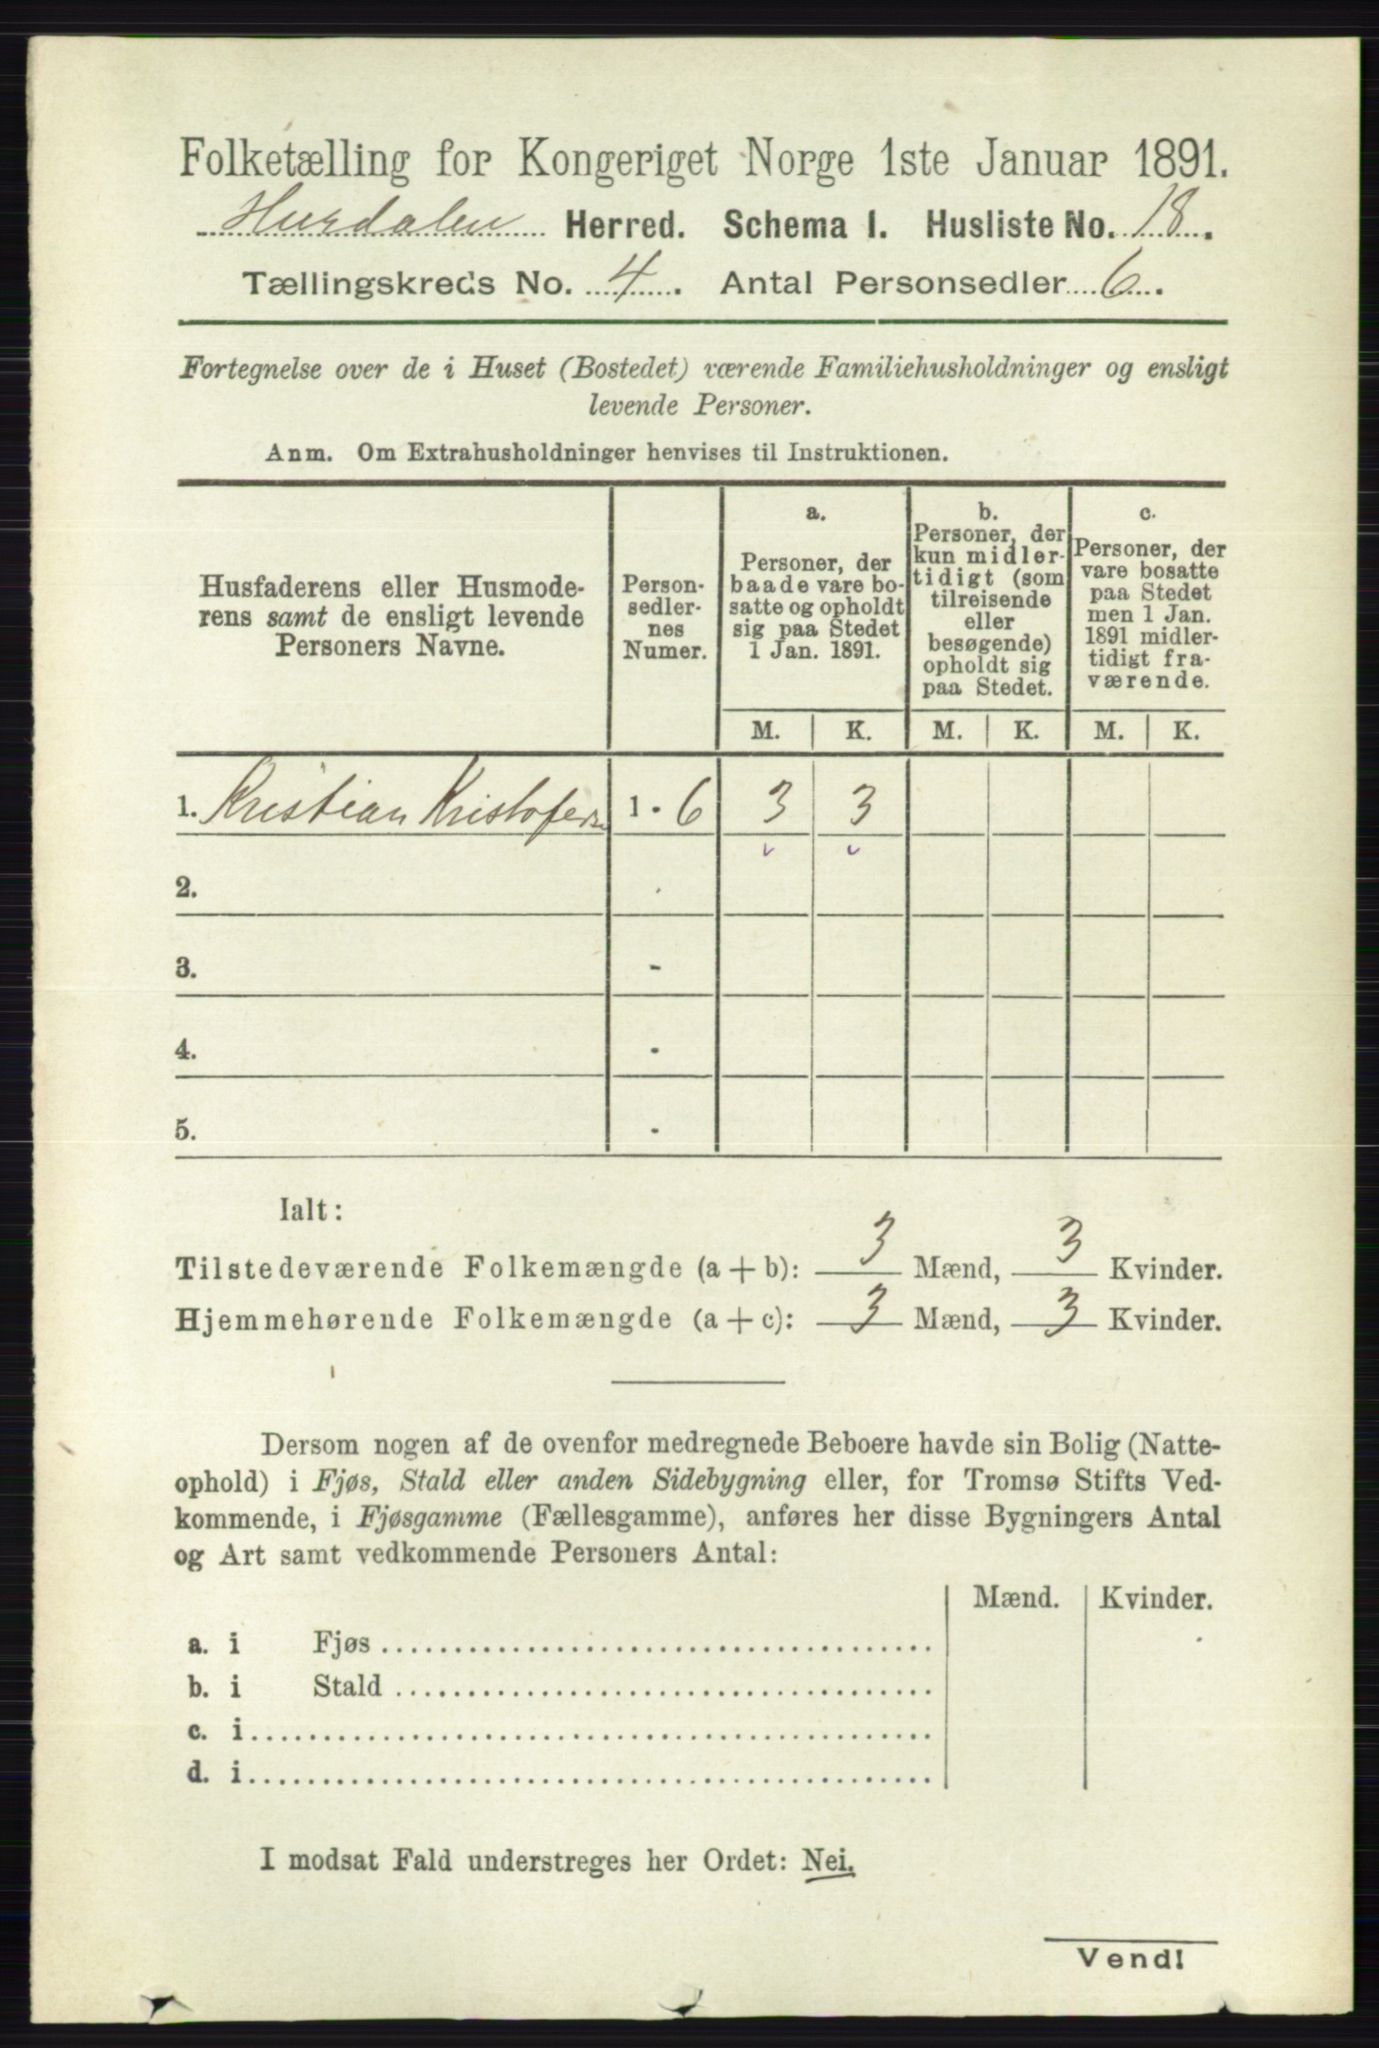 Folketælling for Kongeriget Norge 1ste Januar 1891.
Hurdalen Herred. Schema I. Husliste No. 18.
Tællingskreds No. 4. Antal Personsedler 6.
Fortegnelse over de i Huset (Bostedet) værende Familiehusholdninger og ensligt
levende Personer.
Anm. Om Extrahusholdninger henvises til Instruktionen.
Husfaderens eller Husmode-
rens samt de ensligt levende
Personers Navne.
Person-
sedler-
nes
Numer.
a.
Personer, der
baade vare bo-
satte og opholdt
sig paa Stedet
1 Jan. 1891.
b.
Personer, der
kun midler-
tidigt (som
tilreisende
eller
besøgende)
opholdt sig
paa Stedet.
c.
Personer, der
vare bosatte
paa Stedet
men 1 Jan.
1891 midler-
tidigt fra-
værende.
M. K. M. K. M. K.
1. Kristian Kristofersen 1 - 6 3 3
2.
3. -
4. -
5. -
Ialt:
Tilstedeværende Folkemængde (a + b): 3 Mænd, 3 Kvinder.
Hjemmehørende Folkemængde (a + c): 3 Mænd, 3 Kvinder.
Dersom nogen af de ovenfor medregnede Beboere havde sin Bolig (Natte-
ophold) i Fjøs, Stald eller anden Sidebygning eller, for Tromsø Stifts Ved-
kommende, i Fjøsgamme (Fællesgamme), anføres her disse Bygningers Antal
og Art samt vedkommende Personers Antal:
Mænd. Kvinder.
a. i Fjøs
b. i Stald
c. i
d. i
I modsat Fald understreges her Ordet: Nei.
Vend!